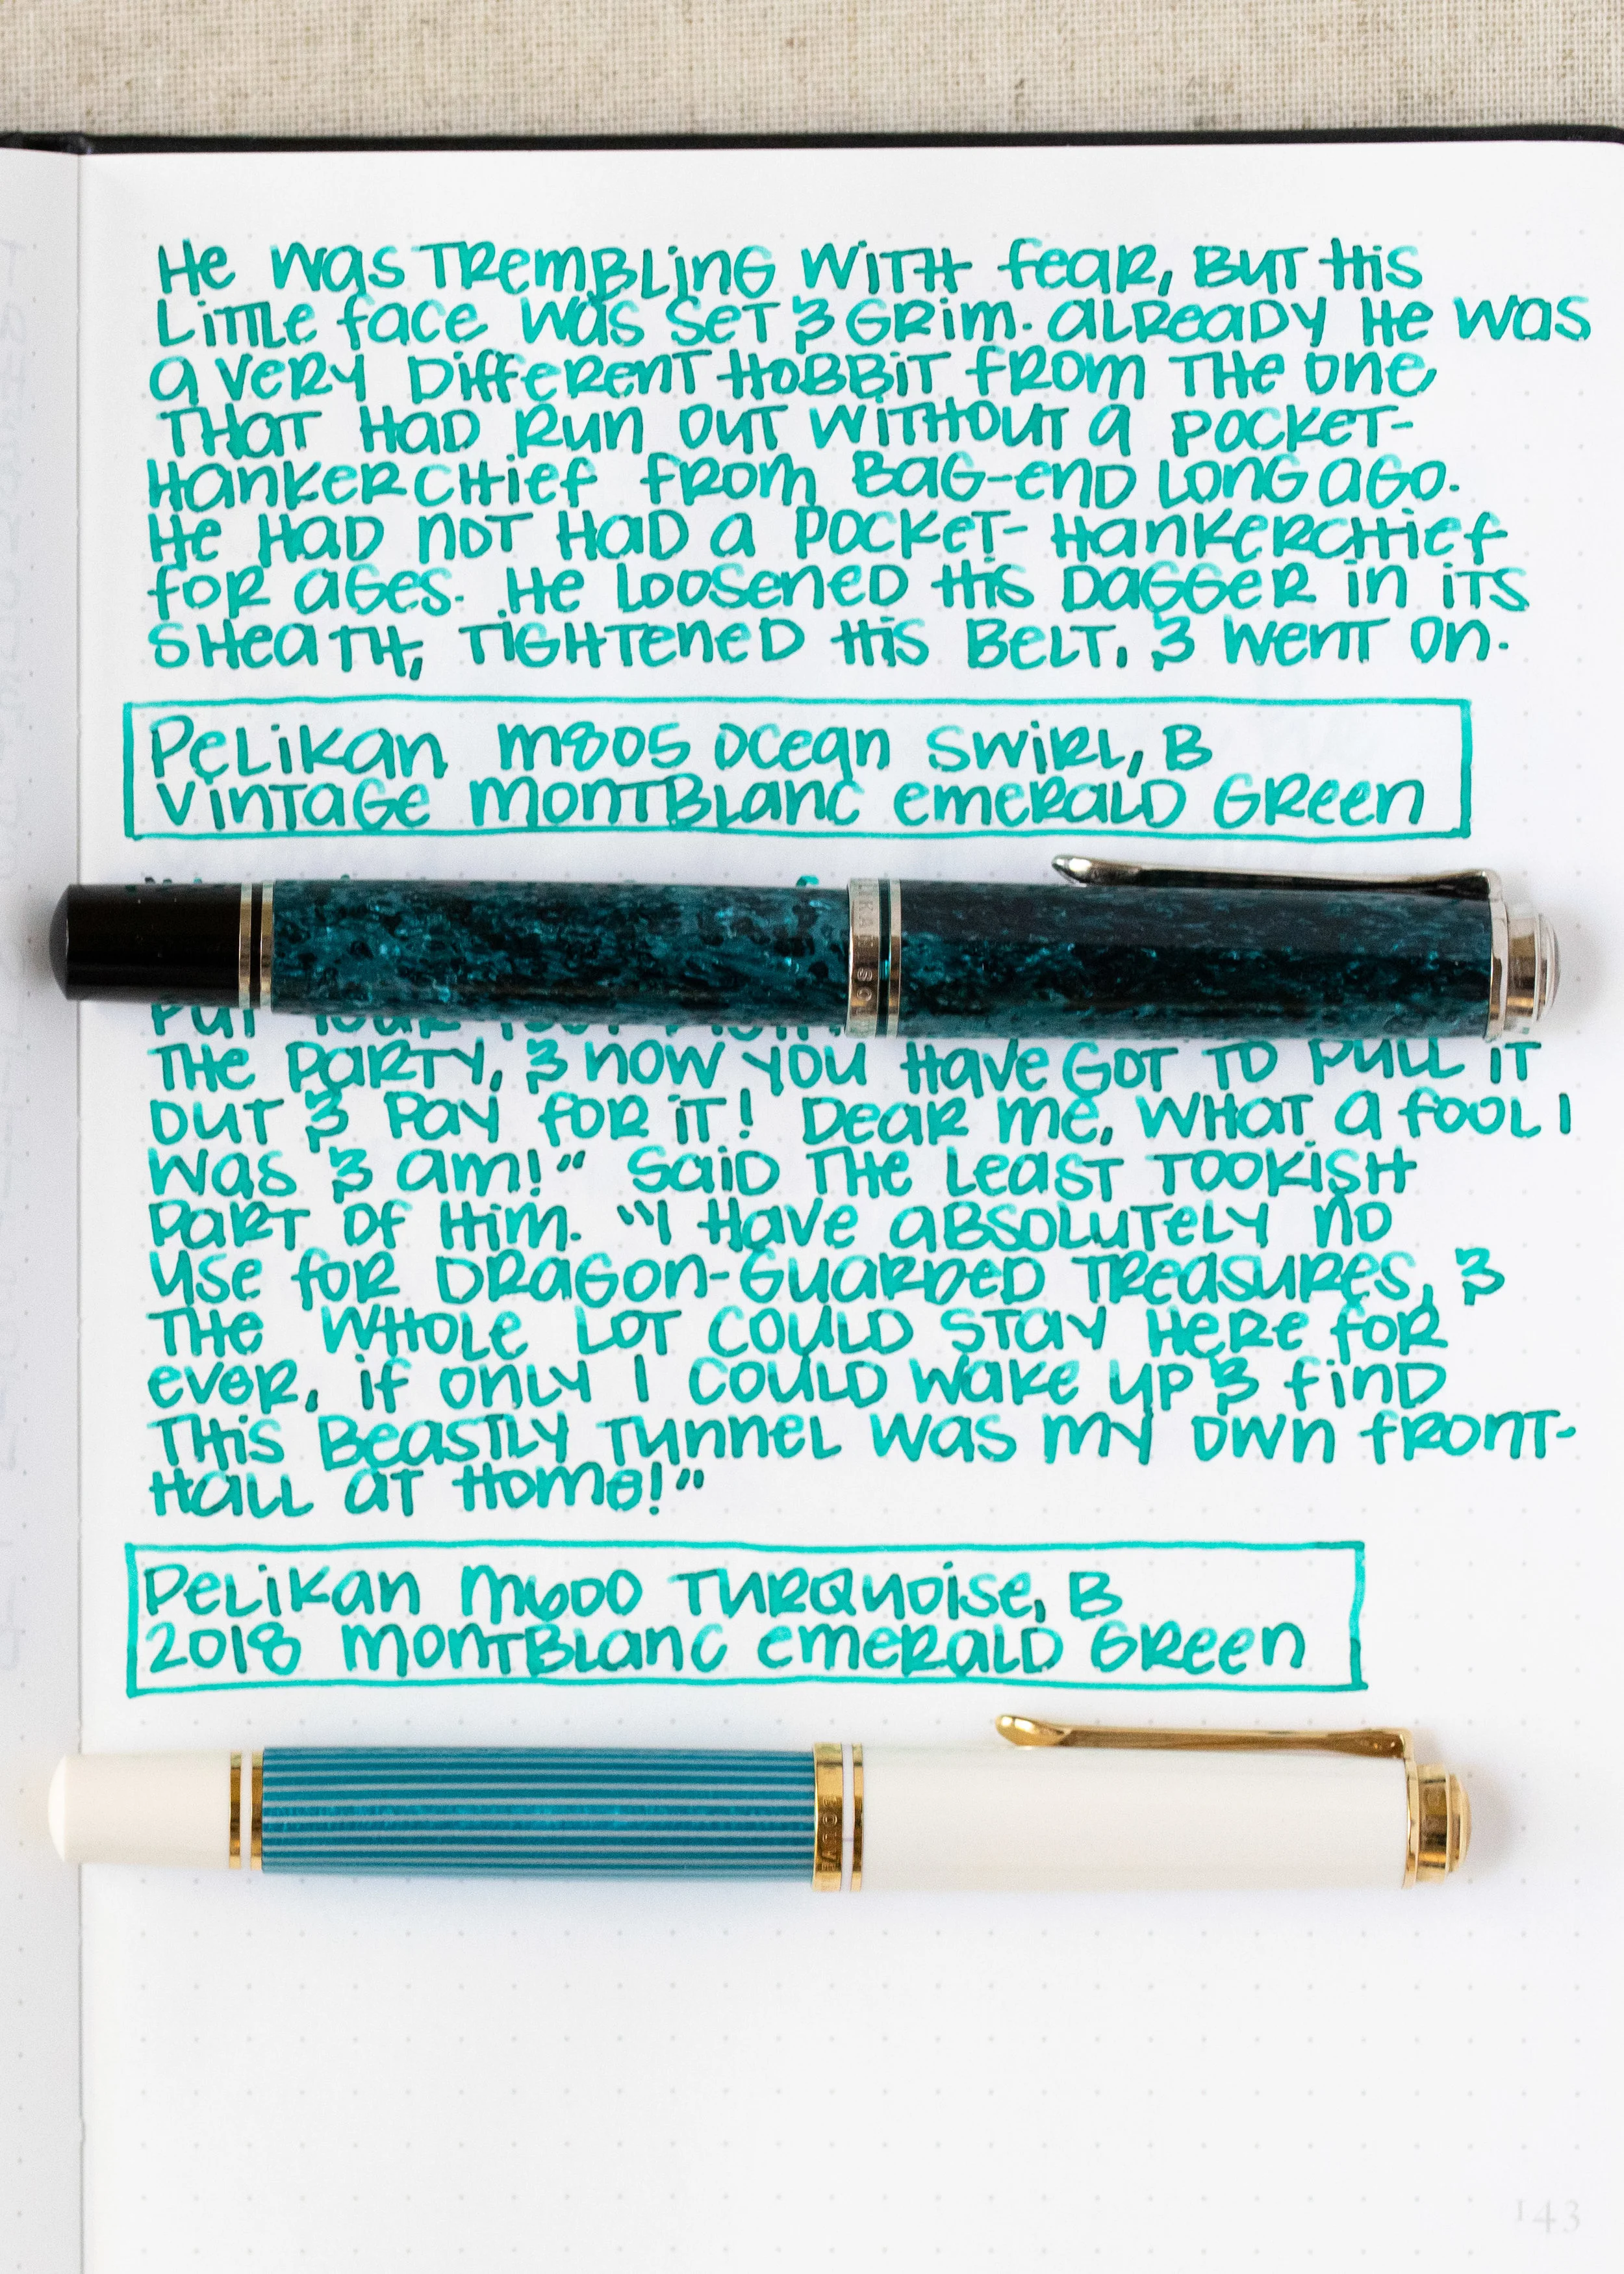 He was trembling with fear, but his
little face was set & grim. Already he was
a very different hobbit from the one
that had run out without a pocket-
hankerchief from Bag-End long ago.
He had not had a pocket-hankerchief
for ages. He loosened his dagger in its
sheath, tightened his belt, & went on.
Pelikan M805 Ocean Swirl, B
Vintage Montblanc Emerald Green
put your foot
the party, & now you have got to pull it
out & pay for it! Dear me, what a fool I
was & am!" said the least Tookish
part of him. "I have absolutely no
use for dragon-guarded treasures, &
the whole lot could stay here for
ever, if only I could wake up & find
this beastly tunnel was my own front-
hall at home!"
Pelikan M600 Turquoise, B
2018 Montblanc Emerald Green
143